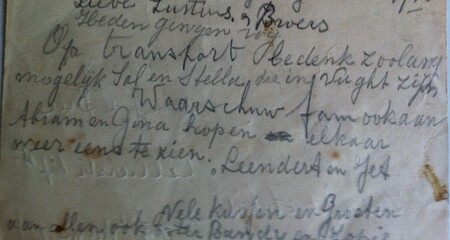 Lieve Zusters, Broers
Heden gingen wij
Op transport Gedenk zoolang
mogelijk Sal en Stella die in Vught zijn
Waarschuw fam ook aan
Abram en Gina hopen elkaar
weer eens te zien. Leendert en Jet
Vele kussen en Groeten
aan allen ook